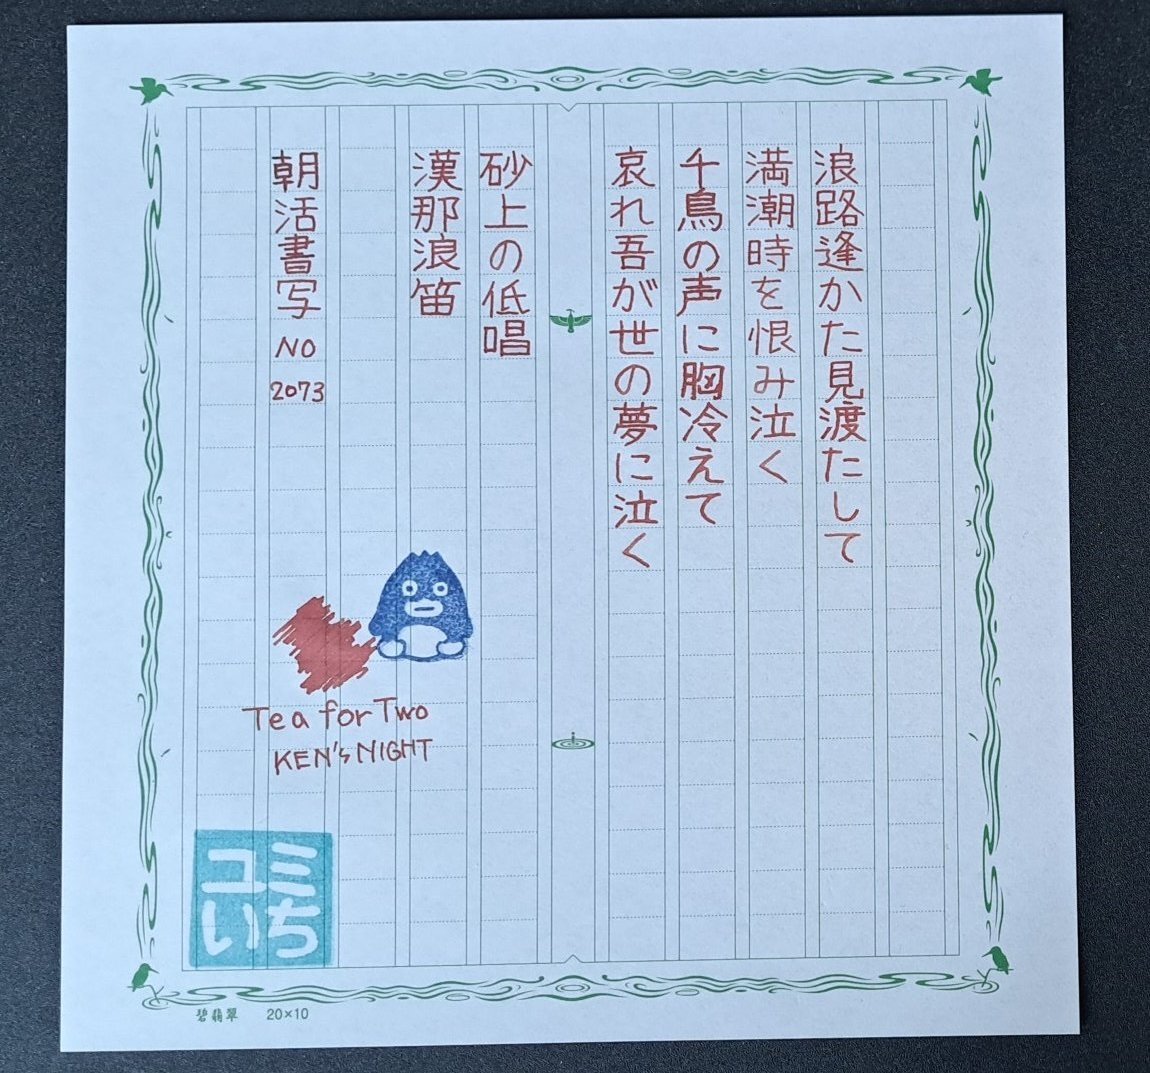 浪路逢かた見渡たして
満潮時を恨み泣く
千鳥の声に胸冷えて
哀れ吾が世の夢に泣く
砂上の低唱
漢那浪笛
朝活書写
NO
2073
Tea for Two
KEN'S NIGHT
ユミ
いち
碧翡翠 20×10